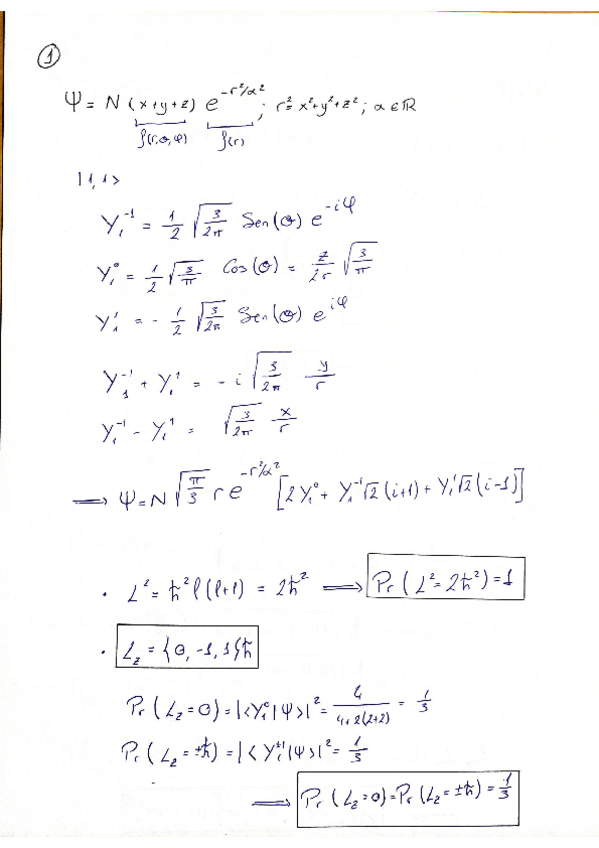 1
Ψ = N (x+y+z) e^{-r²/α²} ; r² = x²+y²+z² ; α ∈ ℝ
f(r,θ,φ) f(r)
|1,1>
Y₁⁻¹ = 1/2 √(3/2π) Sen(θ) e^{-iφ}
Y₁⁰ = 1/2 √(3/π) Cos(θ) = z/2r √(3/π)
Y₁¹ = - 1/2 √(3/2π) Sen(θ) e^{iφ}
Y₁⁻¹ + Y₁¹ = - i √(3/2π) y/r
Y₁⁻¹ - Y₁¹ = √(3/2π) x/r
⟹ Ψ = N √(π/3) r e^{-r²/α²} [2Y₁⁰ + Y₁⁻¹√2 (i+1) + Y₁¹√2 (i-1)]
· L² = ħ² l(l+1) = 2ħ² ⟹ Pr (L² = 2ħ²) = 1
· L_z = {0, -1, 1}ħ
Pr (L_z = 0) = |<Y₁⁰|Ψ>|² = 4/(4+2(2+2)) = 1/3
Pr (L_z = ±ħ) = |<Y₁^{±1}|Ψ>|² = 1/3
⟹ Pr (L_z = 0) = Pr (L_z = ±ħ) = 1/3